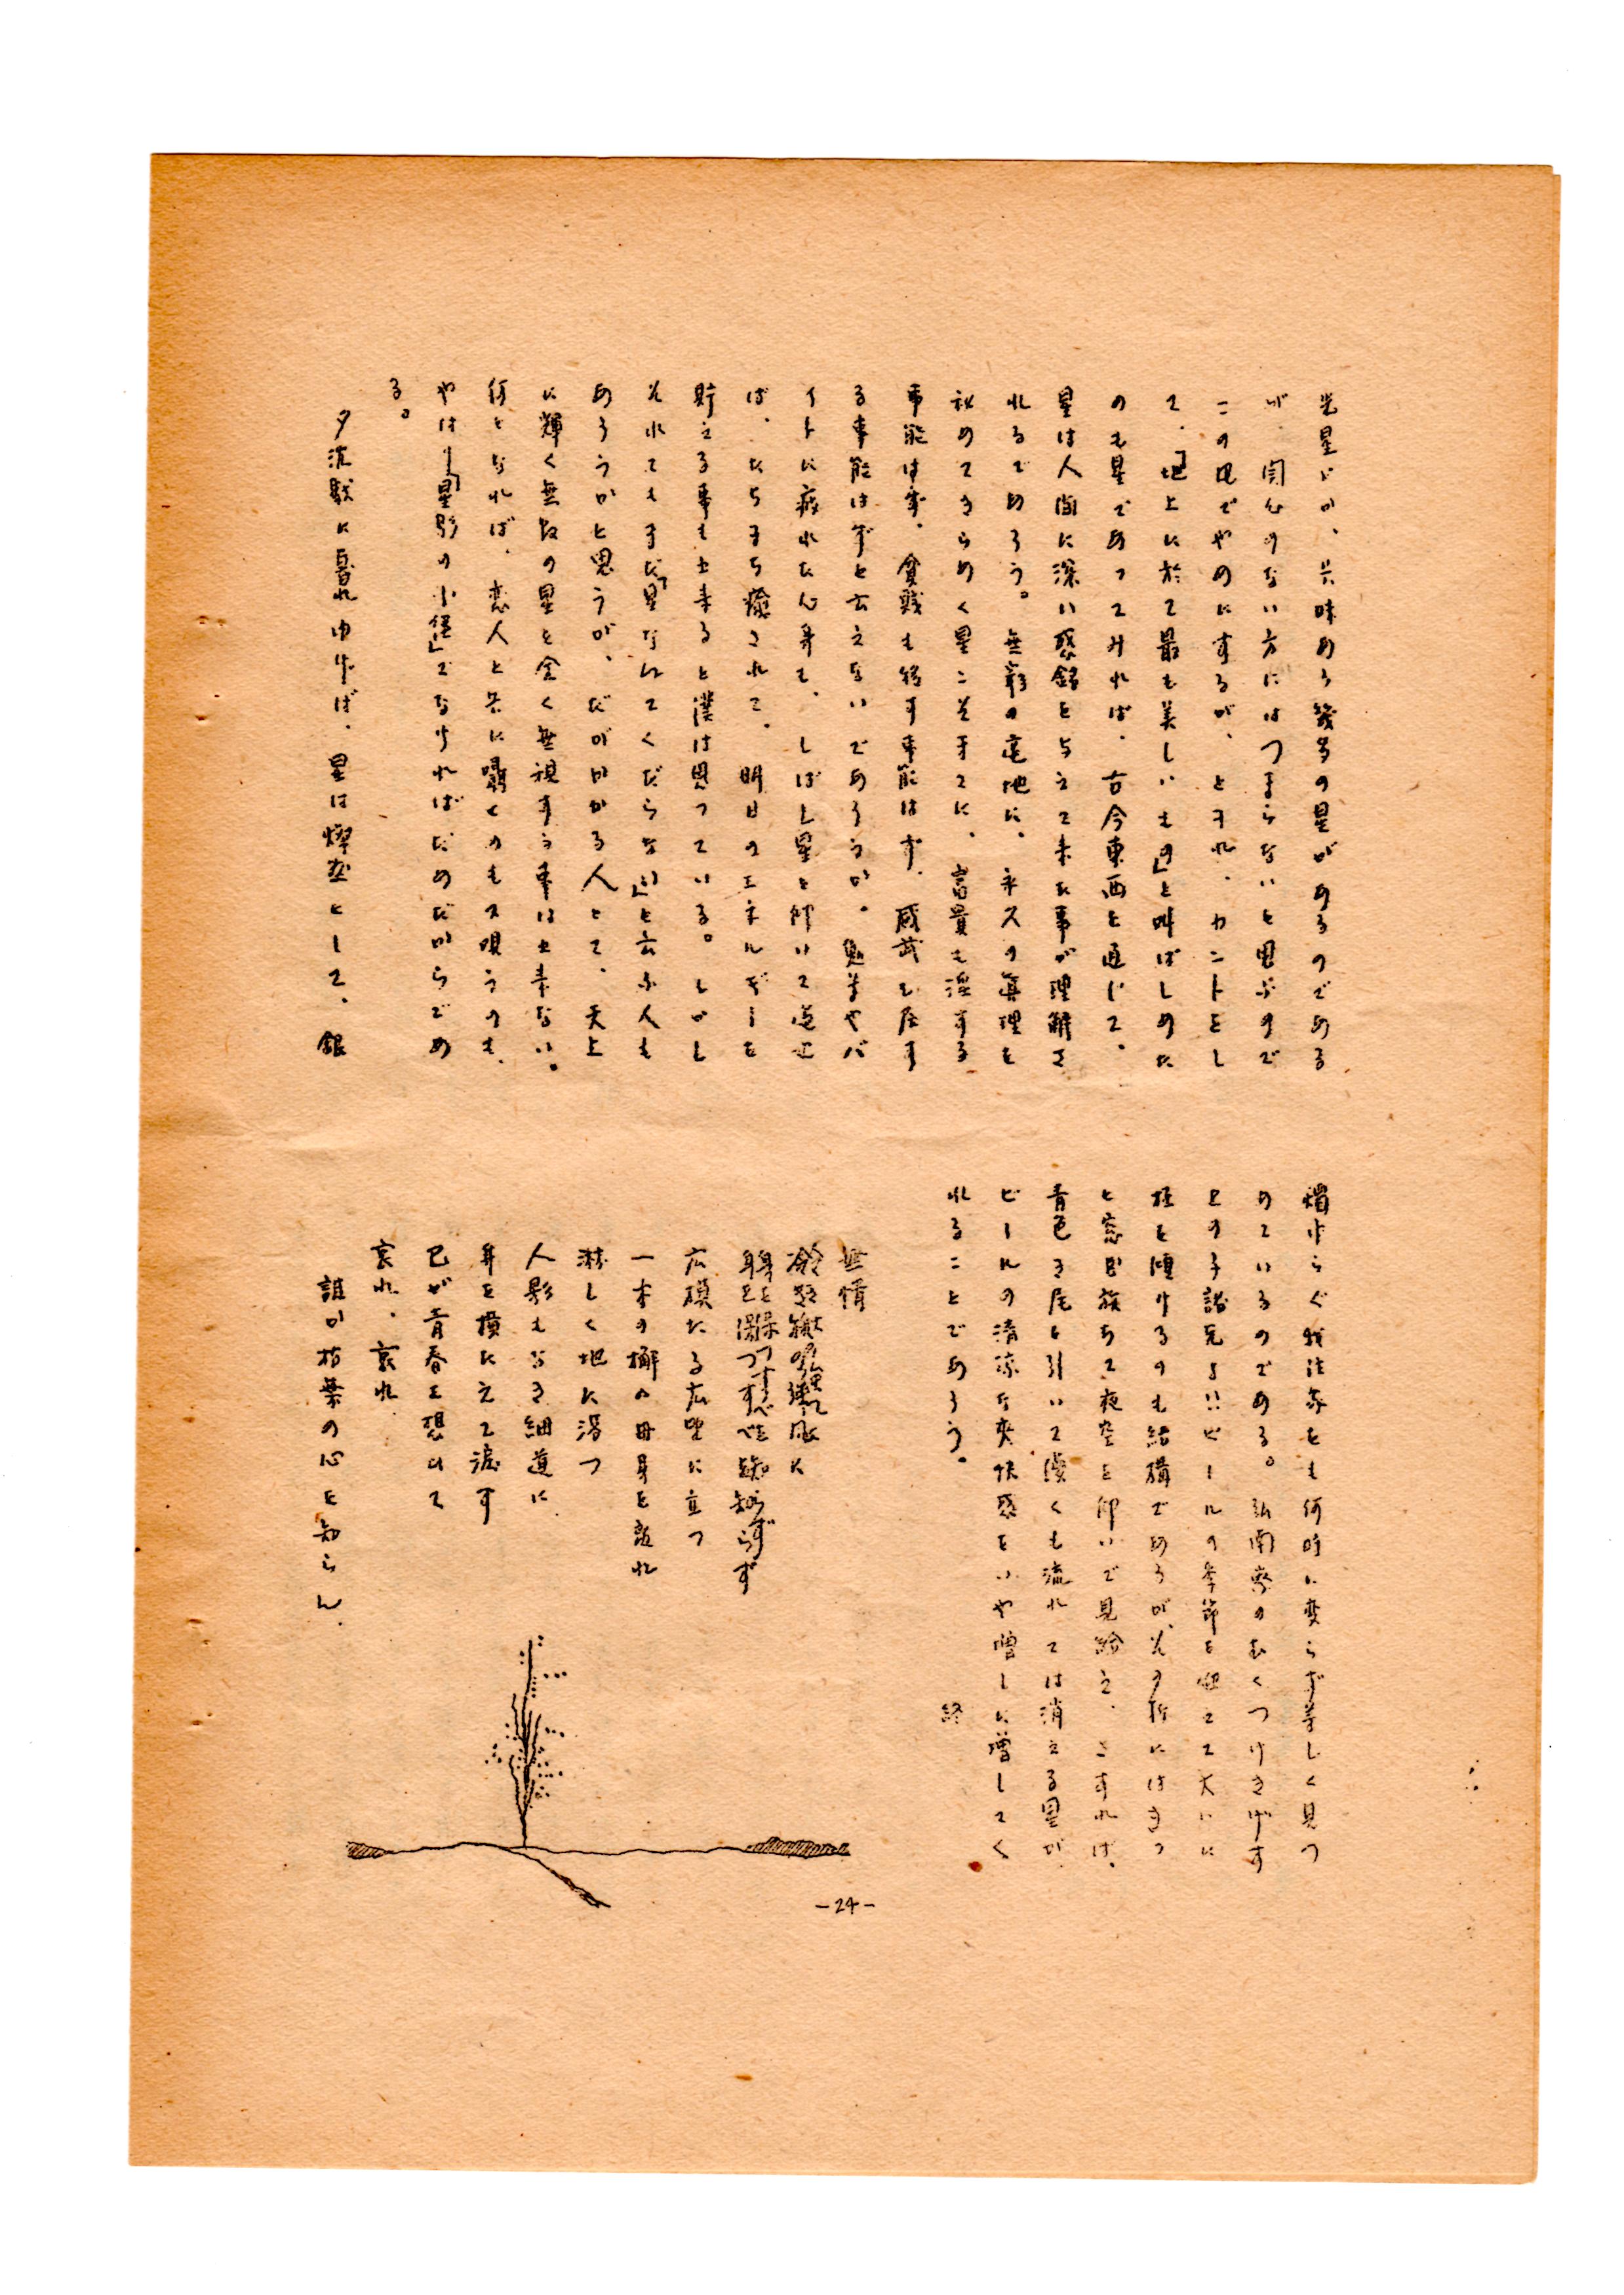 光星とか、興味ある幾多の星があるのである
が、関心のない方にはつまらないと思ふので
この辺でやめにするが、とまれ、カントをし
て、「地上に於て最も美しいもの」と叫ばしめた
のも星であってみれば、古今東西を通じて、
星は人間に深い感銘を与えて来た事が理解さ
れるであろう。無窮の宅地に、永久の真理を
秘めてきらめく星こそまさに、富貴も淫する
事能はず、貧賎も移す事能はず、威武も屈す
る事能はずと云えないであろうか。勉学やバ
イトに疲れた心身も、しばし星を仰いで過せ
ば、たちまち癒されて、明日のエネルギーを
貯える事も出来ると僕は思っている。しかし
それでもまだ「星なんてくだらない」と云ふ人も
あろうかと思うが、だがかかる人とて、天上
に輝く無数の星を全く無視する事は出来ない。
何となれば、恋人と共に囁くのも又唄うのも、
やはり「星影の小径」でなければだめだからであ
る。
夕沈黙に暮れゆけば、星は燦然として、銀
燭ゆらぐ我往年をも何時に変らず等しく見つ
めているのである。弘南寮のむくつけきげす
との子諸兄よ、ビールの季節を迎えて大いに
杯を傾けるのも結構であろが、その折にはきっ
と窓固族ちて夜空を仰いで見給え、さすれば、
青色き尾を引いて儚くも流れては消える星が
ビールの清涼な爽快感をいや増しに増してく
れることであろう。
終
無情
身を保つすべを知らず
広漠たる広野に立つ
一本の樹の母身を離れ
淋しく地に落つ
人影もなき細道に
身を横たえて涙す
己が青春を想ひて
哀れ、哀れ
誰か枯葉の心を知らん.
-24-